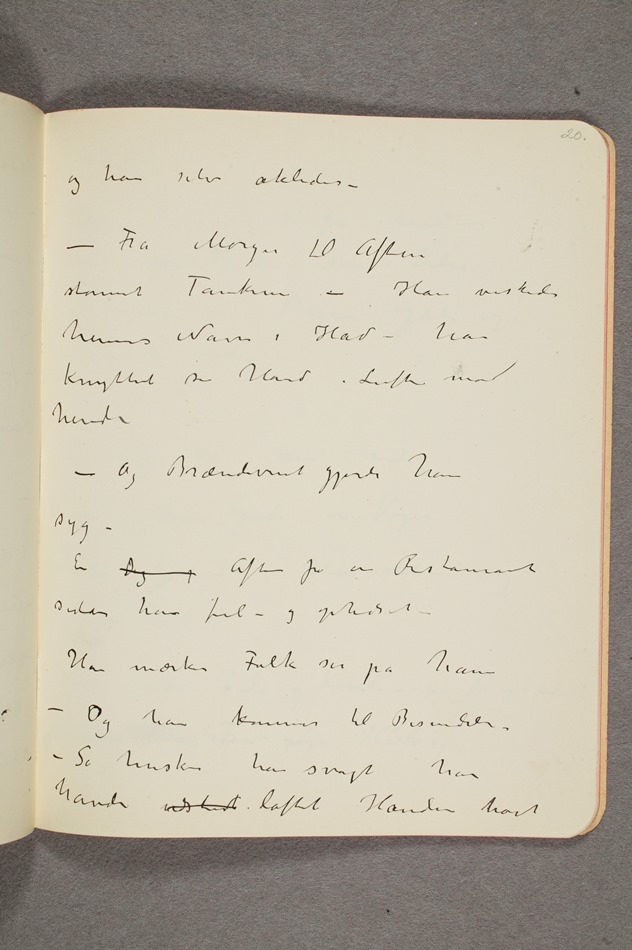 20.
og han selv ækledes –
— Fra Morgen til Aften
stormet Tankerne – Han viskede
hennes Navn i Had – han
knyttet sin Haand i Luften mod
hende
— Og Brændevinet gjorde ham
syg –
En Aften på en Restaurant
sidder han fuld – og ophidset –
Han mærker Folk ser på ham
– Og han kommer til Besindelse.
– Så husker han svagt han
havde løftet Hænden højt